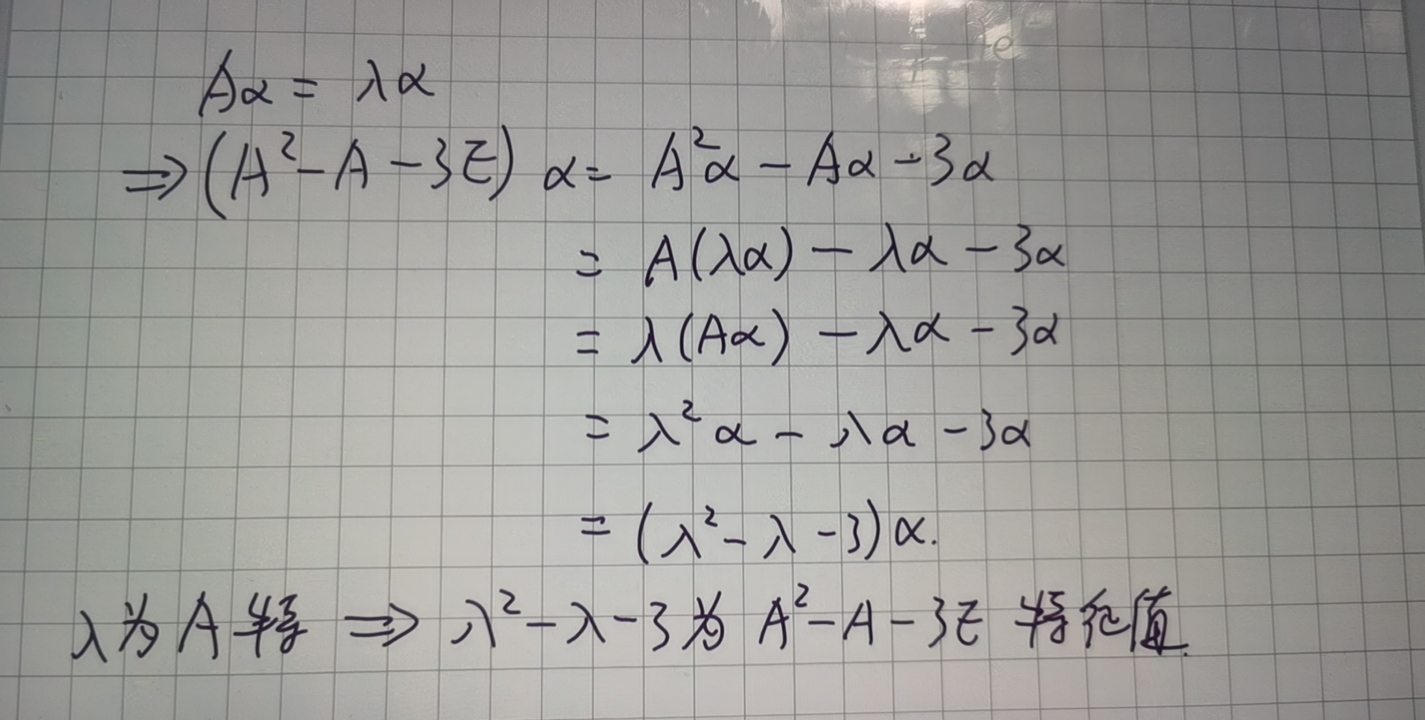 Aα = λα
⇒ (A² - A - 3E) α = A²α - Aα - 3α
= A(λα) - λα - 3α
= λ(Aα) - λα - 3α
= λ²α - λα - 3α
= (λ² - λ - 3)α.
λ为A特 ⇒ λ² - λ - 3为 A² - A - 3E 特征值.